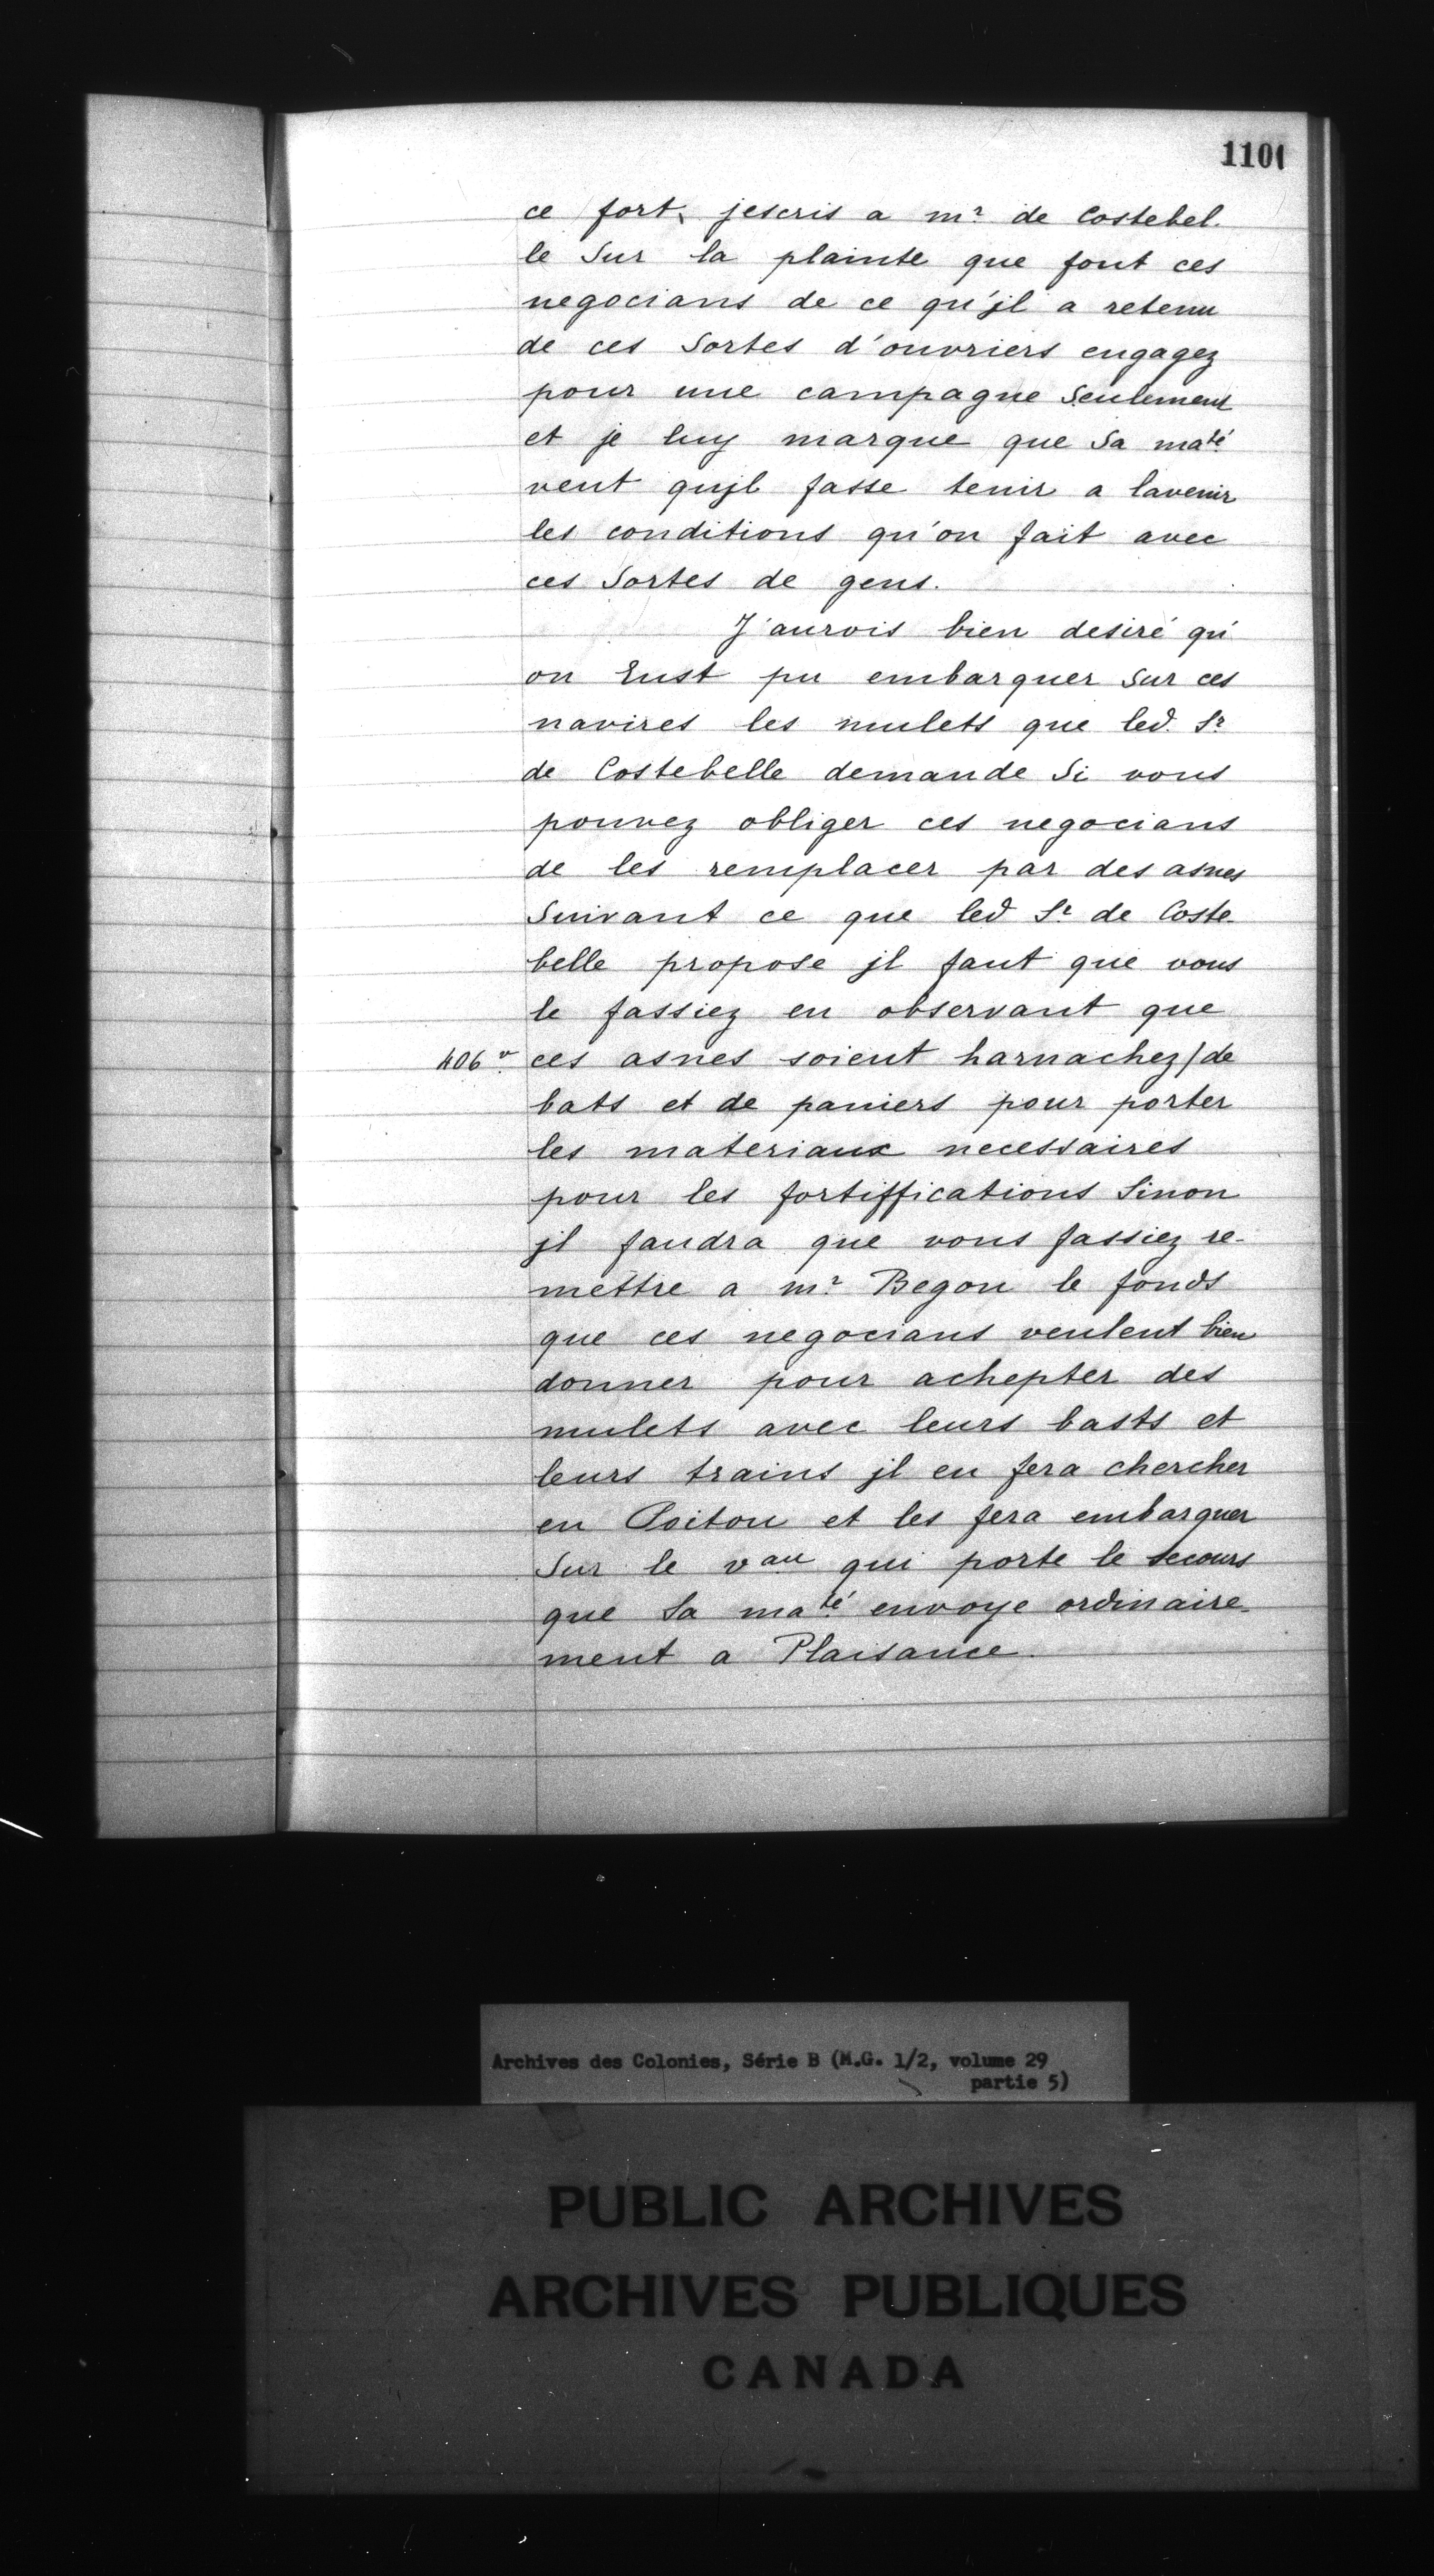 1101
ce fort, jescris a mr de Costebel-
le Sur la plainte que font ces
negocians de ce qu'jl a retenu
de ces Sortes d'ouvriers engagez
pour une campagne Seulement
et je luy marque que Sa maté
veut qujl fasse tenir a lavenir
les conditions qu'on fait avec
ces Sortes de gens.
J'aurois bien desiré qu'
on Eust pu embarquer Sur ces
navires les mulets que led. Sr
de Costebelle demande Si vous
pouvez obliger ces negocians
de les remplacer par des asnes
Suivant ce que led Sr de Coste-
belle propose jl faut que vous
le fassiez en observant que
406 v. ces asnes soient harnachez/de
bats et de paniers pour porter
les materiaux necessaires
pour les fortiffications Sinon
jl faudra que vous fassiez re-
mettre a mr Begon le fonds
que ces negocians veulent bien
donner pour achepter des
mulets avec leurs basts et
leurs trains jl en fera chercher
en Poitou et les fera embarquer
Sur le vau qui porte le Secours
que Sa maté envoye ordinaire-
ment a Plaisance.
Archives des Colonies, Série B (M.G. 1/2, volume 29
partie 5)
PUBLIC ARCHIVES
ARCHIVES PUBLIQUES
CANADA